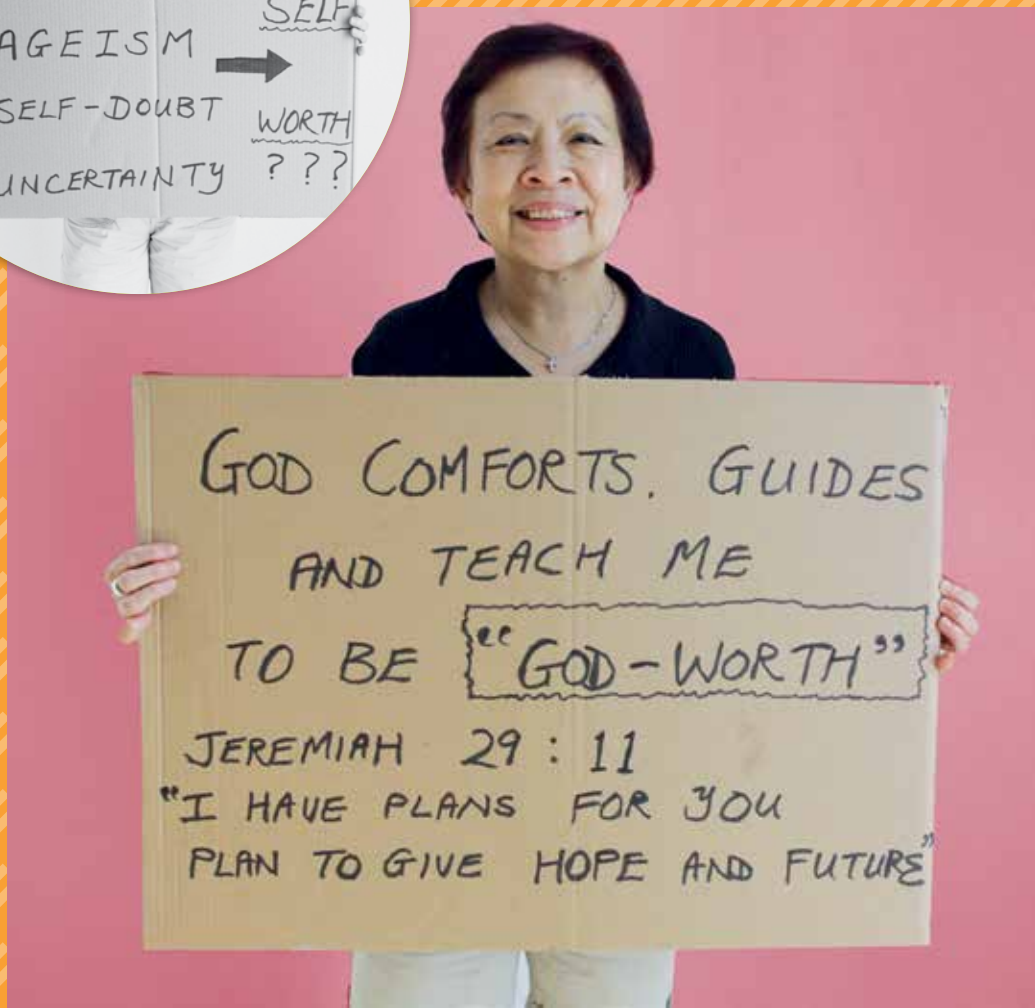 SELF
AGEISM
SELF-DOUBT
WORTH
UNCERTAINTY
? ? ?
GOD COMFORTS. GUIDES
AND TEACH ME
TO BE "GOD-WORTH"
JEREMIAH 29:11
"I HAVE PLANS FOR YOU
PLAN TO GIVE HOPE AND FUTURE"